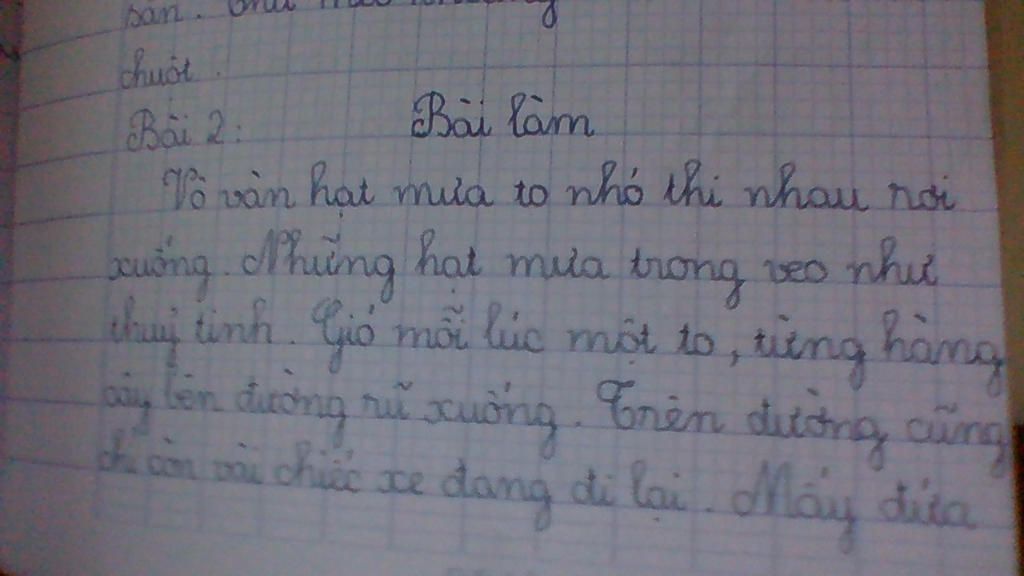 bàn.
chuột.
Bài 2: Bài làm
Vô vàn hạt mưa to nhỏ thi nhau rơi
xuống. Những hạt mưa trong veo như
thuỷ tinh. Gió mỗi lúc một to, từng hàng
cây bên đường rũ xuống. Trên đường cũng
chỉ còn vài chiếc xe đang đi lại. Mấy đứa